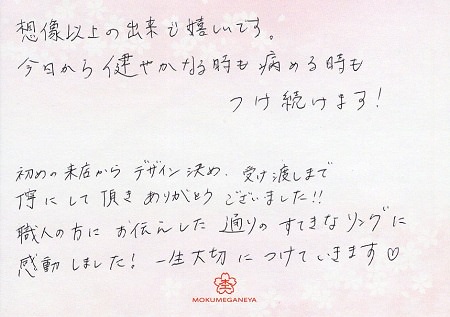 想像以上の出来で嬉しいです。
今日から健やかなる時も病める時も
つけ続けます!
初めの来店からデザイン決め、受け渡しまで
寧にして頂きありがとうございました!!
職人の方にお伝えした通りのすてきなリングに
感動しました! 一生大切につけていきます♡
MOKUMEGANEYA